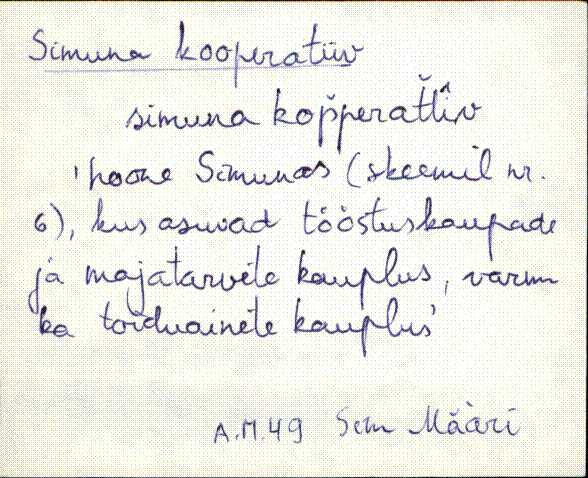 Simuna kooperatiiv
simuna kop̆perat̆t̆îv
'hoone Simunas (skeemil nr.
6), kus asuvad tööstuskaupade
ja majatarvete kauplus, varem
ka toiduainete kauplus'
A.M.49 Sim Määri